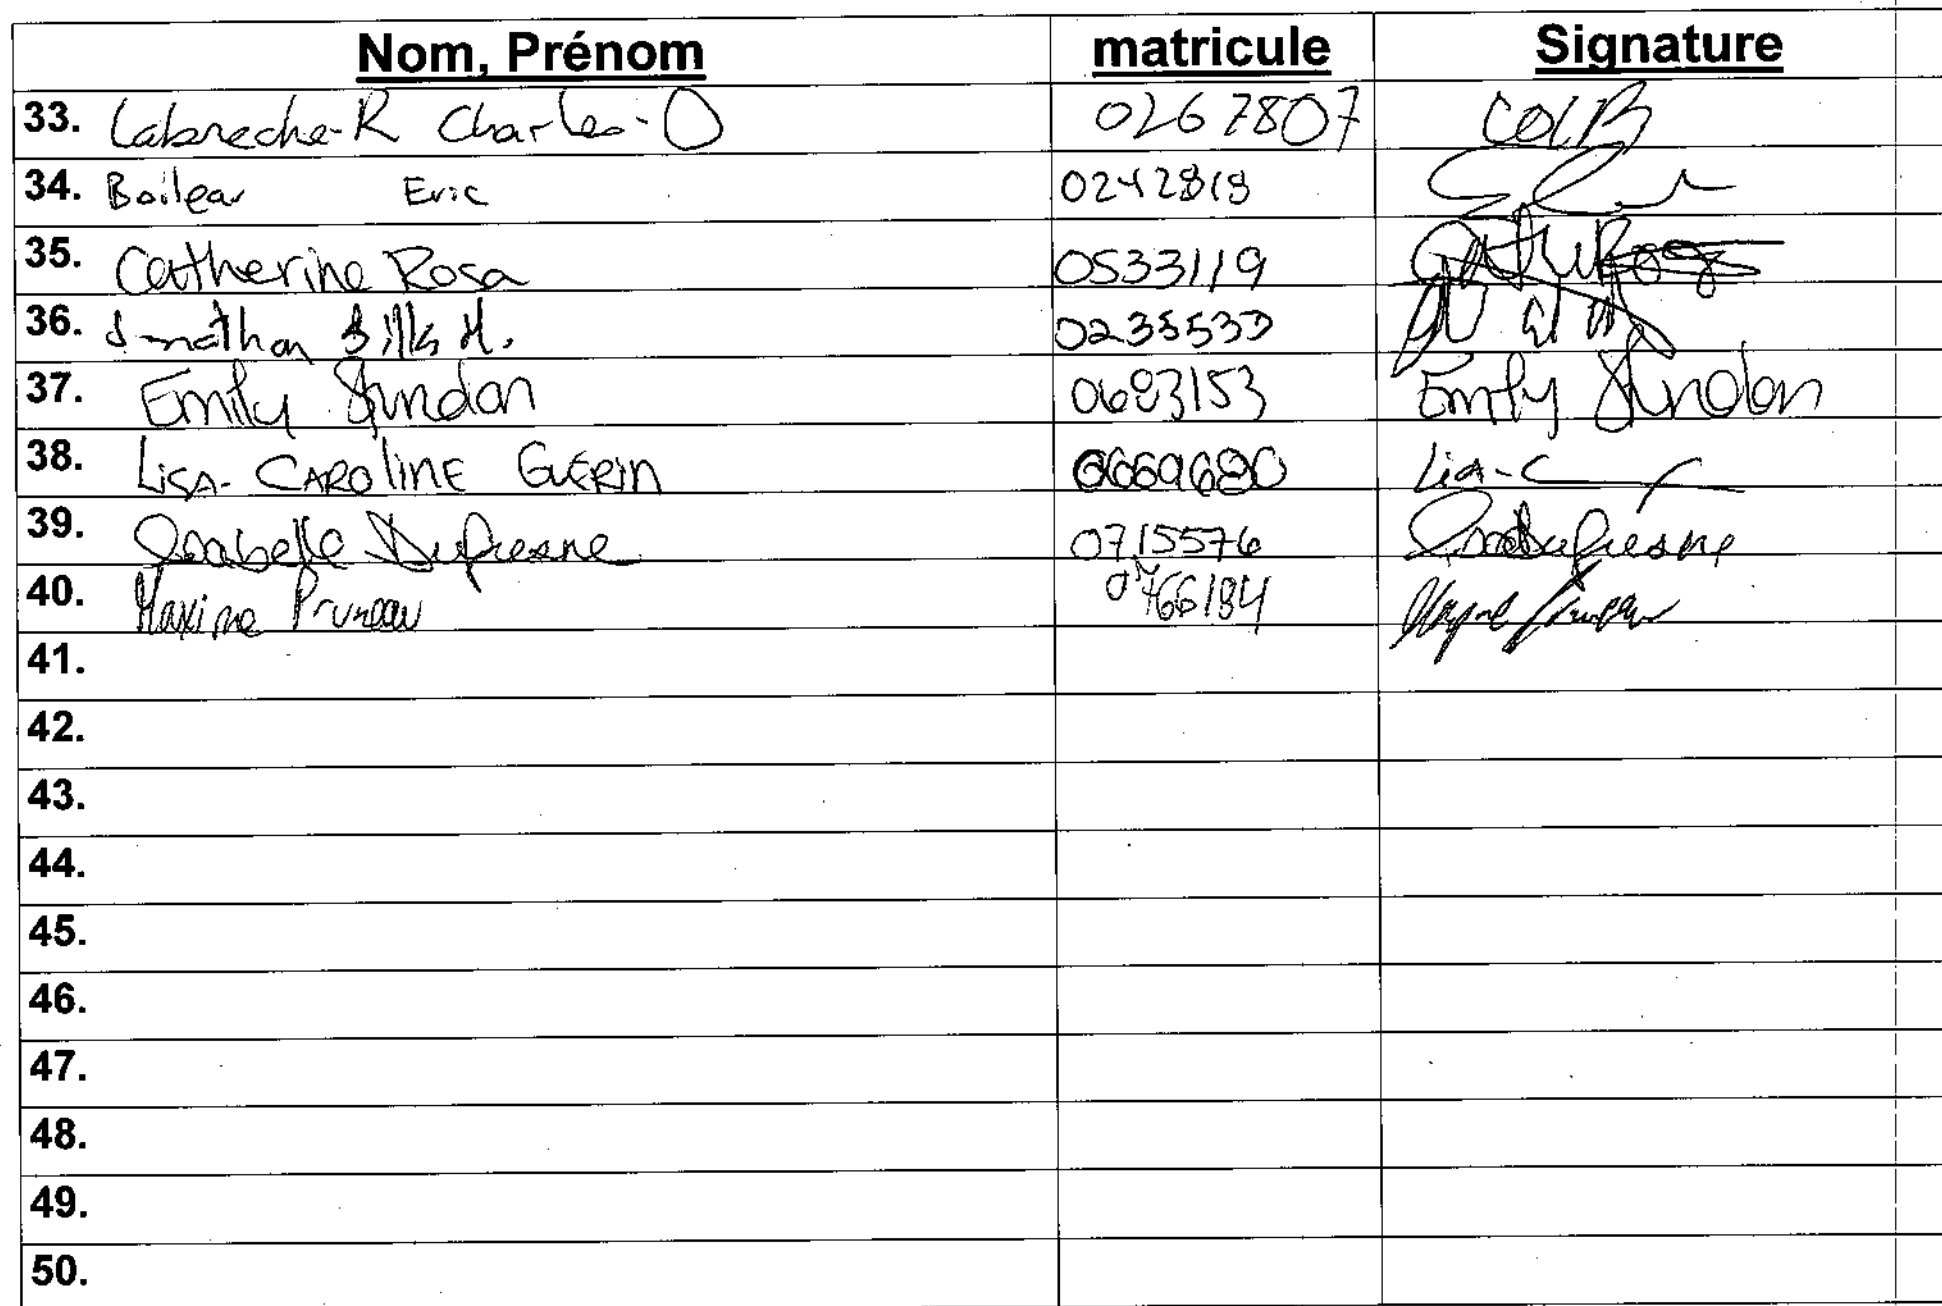 Nom, Prénom matricule Signature
33. Labreche-R Charles-O 0267807 COLB
34. Boileau Eric 0242818
35. Catherine Rosa 0533119
36. Jonathan 0235533
37. Emily 0683153 Emily
38. LISA-CAROLINE GUÉRIN 0669680 Lisa-C
39. Isabelle Dufresne 0715576 Dufresne
40. Maxime Pruneau 0766184 Pruneau
41.
42.
43.
44.
45.
46.
47.
48.
49.
50.